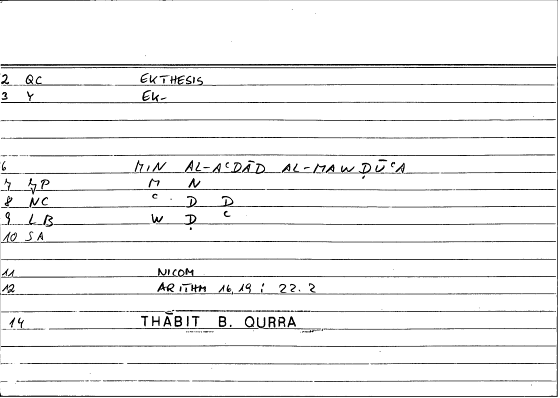 2 QC EKTHESIS
3 Y EK-
6 MIN AL-AᶜDĀD AL-MAWḌŪᶜA
7 M N
8 NC ᶜ D D
9 LB W Ḍ ᶜ
10 SA
11 NICOM
12 ARITHM 16,19 ; 22.2
14 THĀBIT B. QURRA